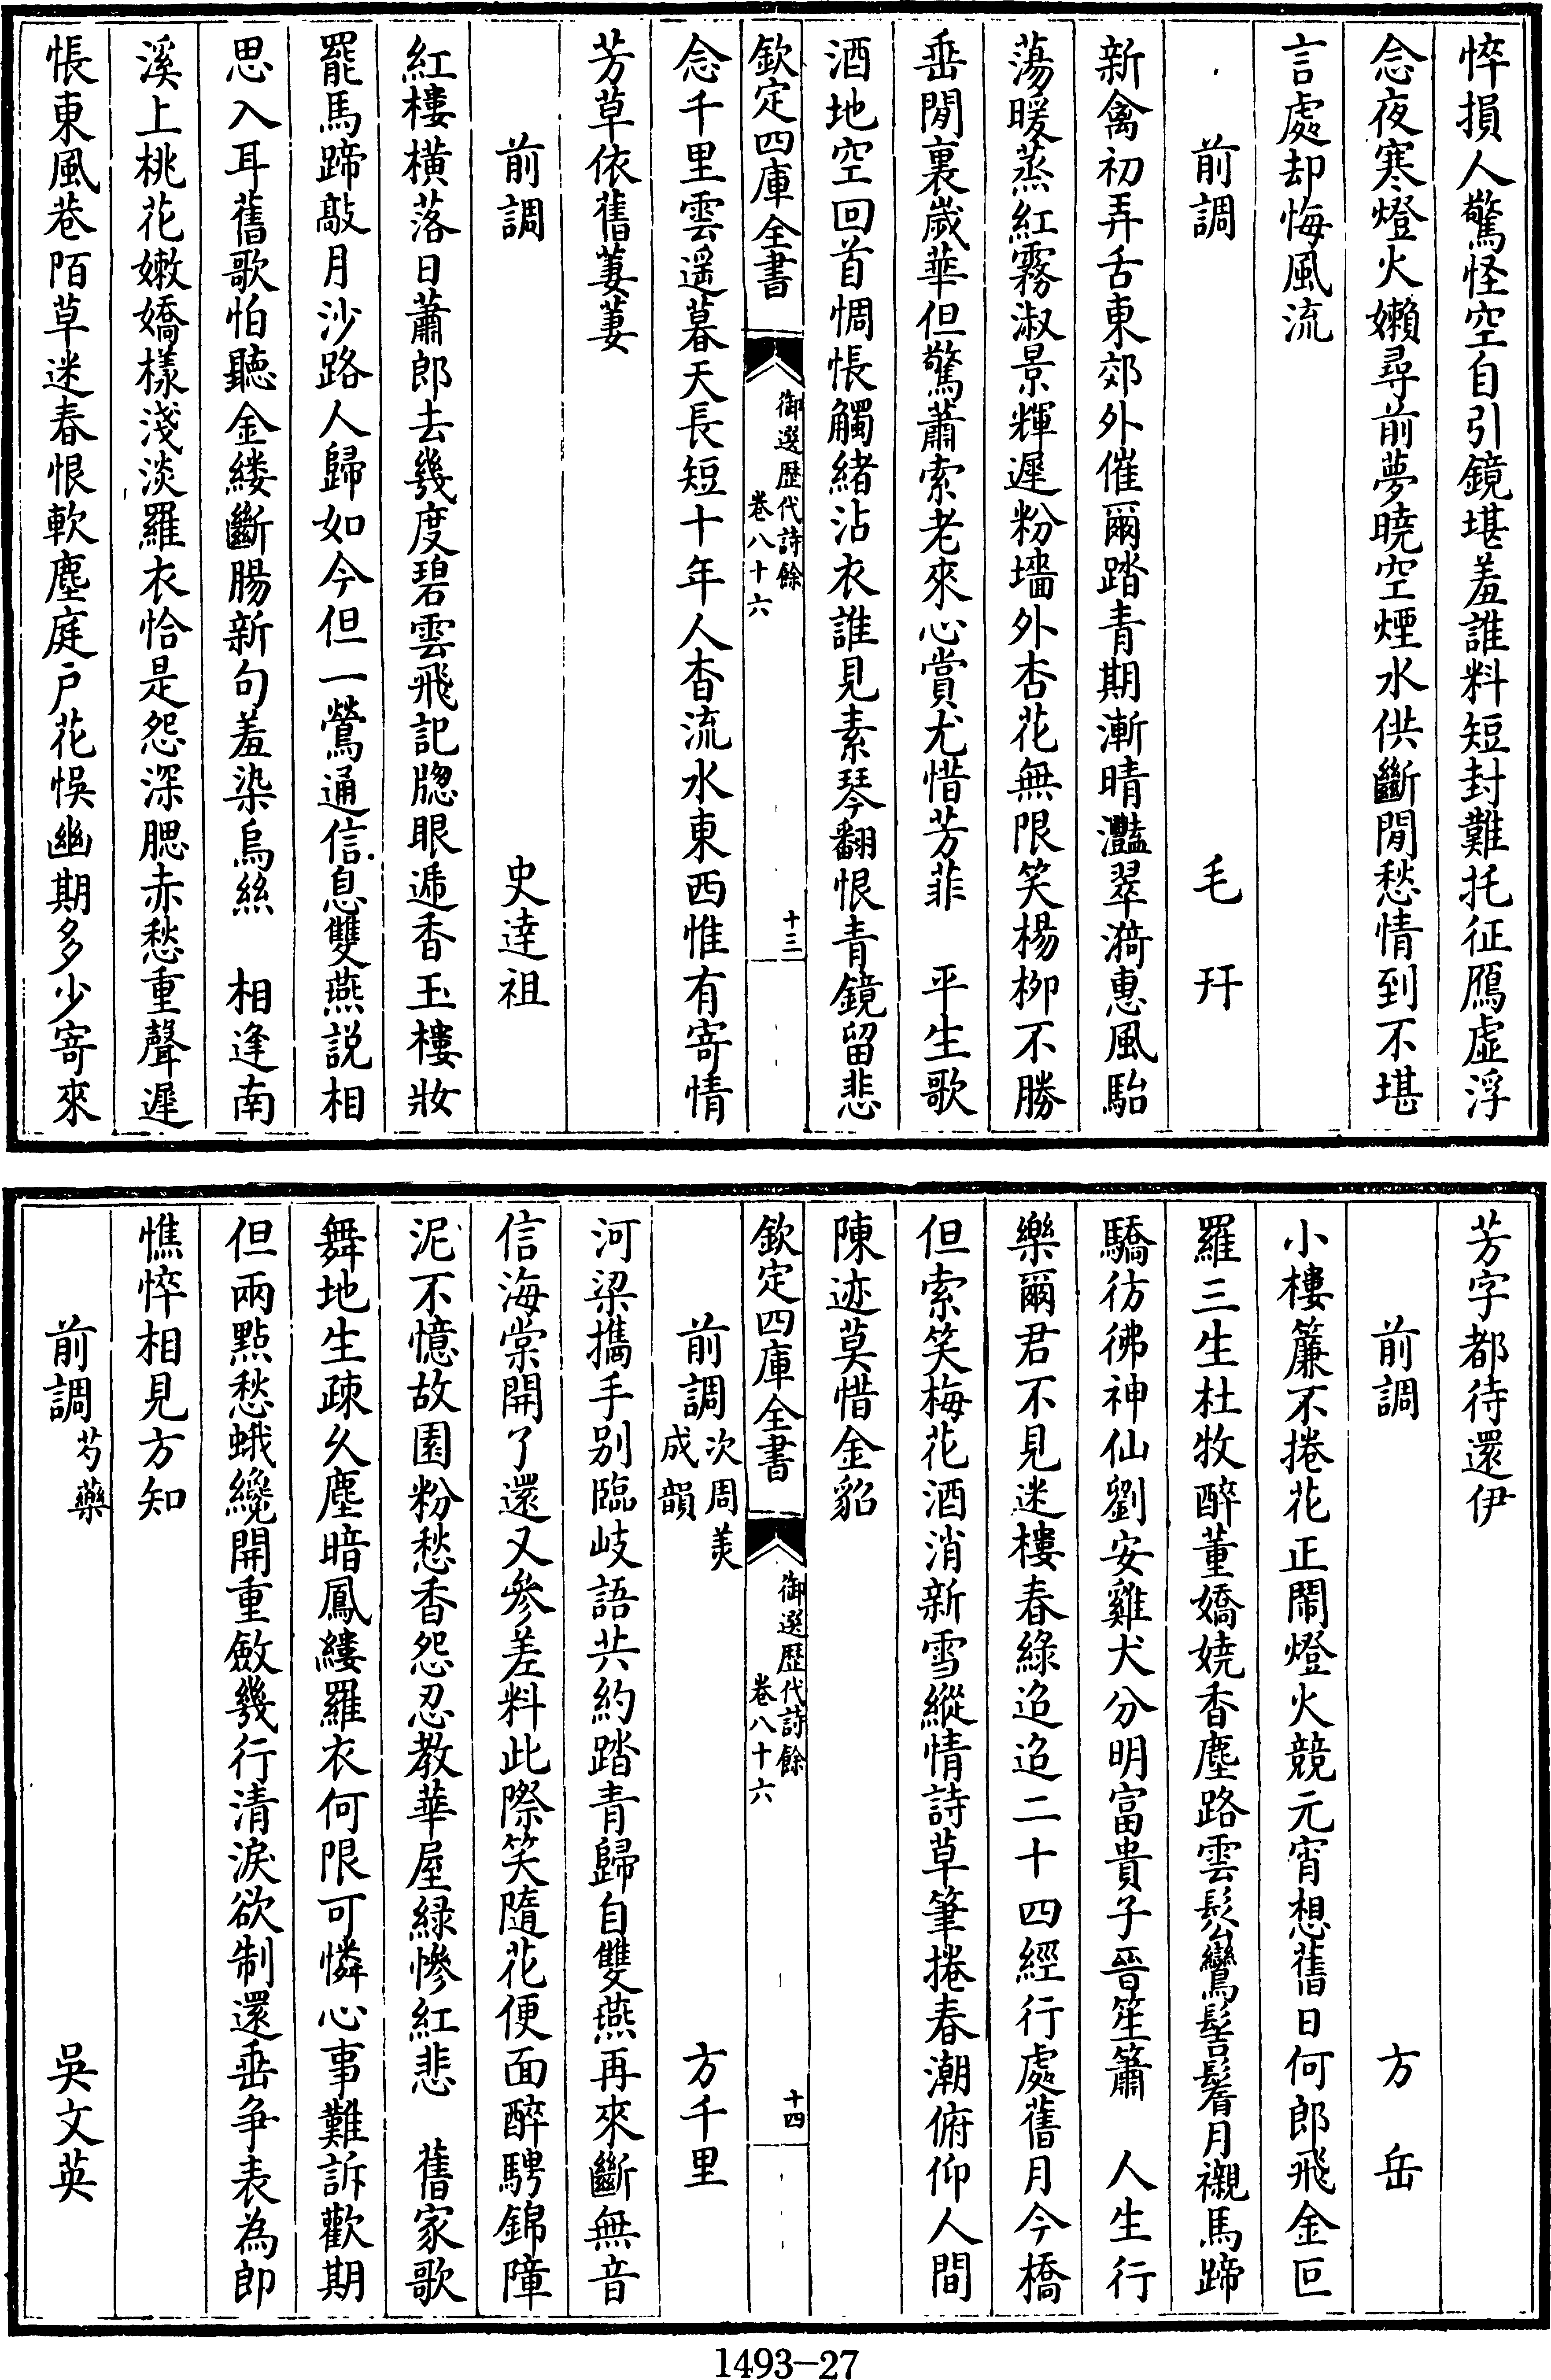 悴損人驚怪空自引鏡堪羞誰料短封難托征鴈虛浮
念夜寒燈火嬾尋前夢曉空煙水供斷閒愁情到不堪
言處却悔風流
前調 毛幵
新禽初弄舌東郊外催爾踏青期漸晴灩翠漪惠風駘
蕩暖蒸紅霧淑景輝遲粉墻外杏花無限笑楊柳不勝
垂閒裏嵗華但驚蕭索老來心賞尤惜芳菲 平生歌
酒地空回首惆悵觸緒沾衣誰見素琴翻恨青鏡留悲
欽定四庫全書 御選歴代詩餘 卷八十六 十三
念千里雲遥暮天長短十年人杳流水東西惟有寄情
芳草依舊萋萋
前調 史達祖
紅樓横落日蕭郎去幾度碧雲飛記牕眼遞香玉樓妝
罷馬蹄敲月沙路人歸如今但一鶯通信息雙燕説相
思入耳舊歌怕聽金縷斷腸新句羞染烏絲 相逢南
溪上桃花嫩嬌樣淺淡羅衣恰是怨深腮赤愁重聲遲
悵東風巷陌草迷春恨軟塵庭户花悞幽期多少寄來
芳字都待還伊
前調 方岳
小樓簾不捲花正閙燈火競元宵想舊日何郎飛金叵
羅三生杜牧醉董嬌嬈香塵路雲鬆鸞髻鬌月襯馬蹄
驕彷彿神仙劉安雞犬分明富貴子晉笙簫 人生行
樂爾君不見迷樓春綠迢迢二十四經行處舊月今橋
但索笑梅花酒消新雪縱情詩草筆捲春潮俯仰人間
陳迹莫惜金貂
欽定四庫全書 御選歴代詩餘 卷八十六 十四
前調 次周美成韻 方千里
河梁攜手别臨岐語共約踏青歸自雙燕再來斷無音
信海棠開了還又參差料此際笑隨花便面醉騁錦障
泥不憶故園粉愁香怨忍教華屋緑慘紅悲 舊家歌
舞地生疎久塵暗鳳縷羅衣何限可憐心事難訴歡期
但兩點愁蛾纔開重斂幾行清淚欲制還垂争表為郎
憔悴相見方知
前調 芍藥 吳文英
1493-27